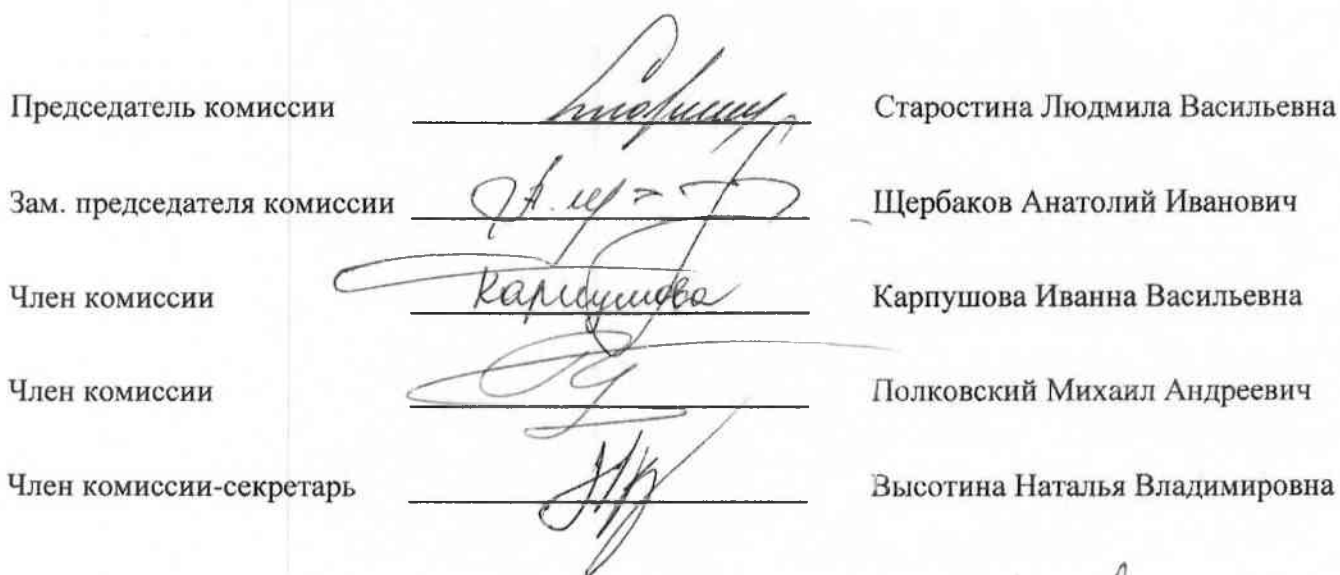 Председатель комиссии Старостина Людмила Васильевна
Зам. председателя комиссии Щербаков Анатолий Иванович
Член комиссии Карпушова Карпушова Иванна Васильевна
Член комиссии Полковский Михаил Андреевич
Член комиссии-секретарь Высотина Наталья Владимировна